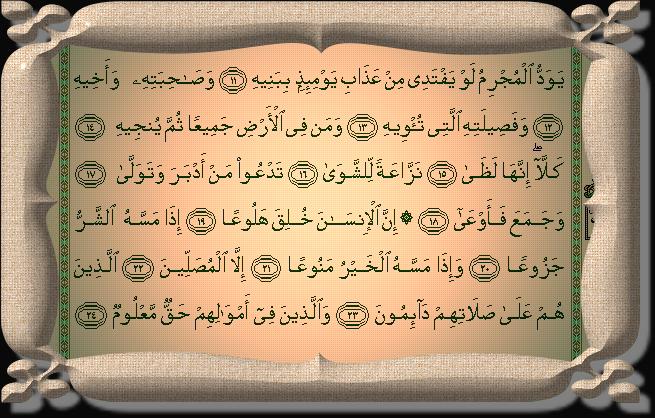 يَوَدُّ ٱلْمُجْرِمُ لَوْ يَفْتَدِى مِنْ عَذَابِ يَوْمِئِذٍۭ بِبَنِيهِ ١١ وَصَـٰحِبَتِهِۦ وَأَخِيهِ
١٢ وَفَصِيلَتِهِ ٱلَّتِى تُـْٔوِيهِ ١٣ وَمَن فِى ٱلْأَرْضِ جَمِيعًا ثُمَّ يُنجِيهِ ١٤
كَلَّآ ۖ إِنَّهَا لَظَىٰ ١٥ نَزَّاعَةً لِّلشَّوَىٰ ١٦ تَدْعُوا۟ مَنْ أَدْبَرَ وَتَوَلَّىٰ ١٧
وَجَمَعَ فَأَوْعَىٰٓ ١٨ ۞ إِنَّ ٱلْإِنسَـٰنَ خُلِقَ هَلُوعًا ١٩ إِذَا مَسَّهُ ٱلشَّرُّ
جَزُوعًا ٢٠ وَإِذَا مَسَّهُ ٱلْخَيْرُ مَنُوعًا ٢١ إِلَّا ٱلْمُصَلِّينَ ٢٢ ٱلَّذِينَ
هُمْ عَلَىٰ صَلَاتِهِمْ دَآئِمُونَ ٢٣ وَٱلَّذِينَ فِىٓ أَمْوَٰلِهِمْ حَقٌّ مَّعْلُومٌ ٢٤